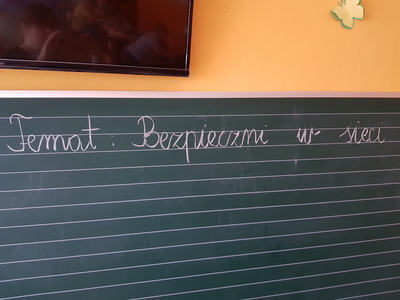 Temat: Bezpieczni w sieci